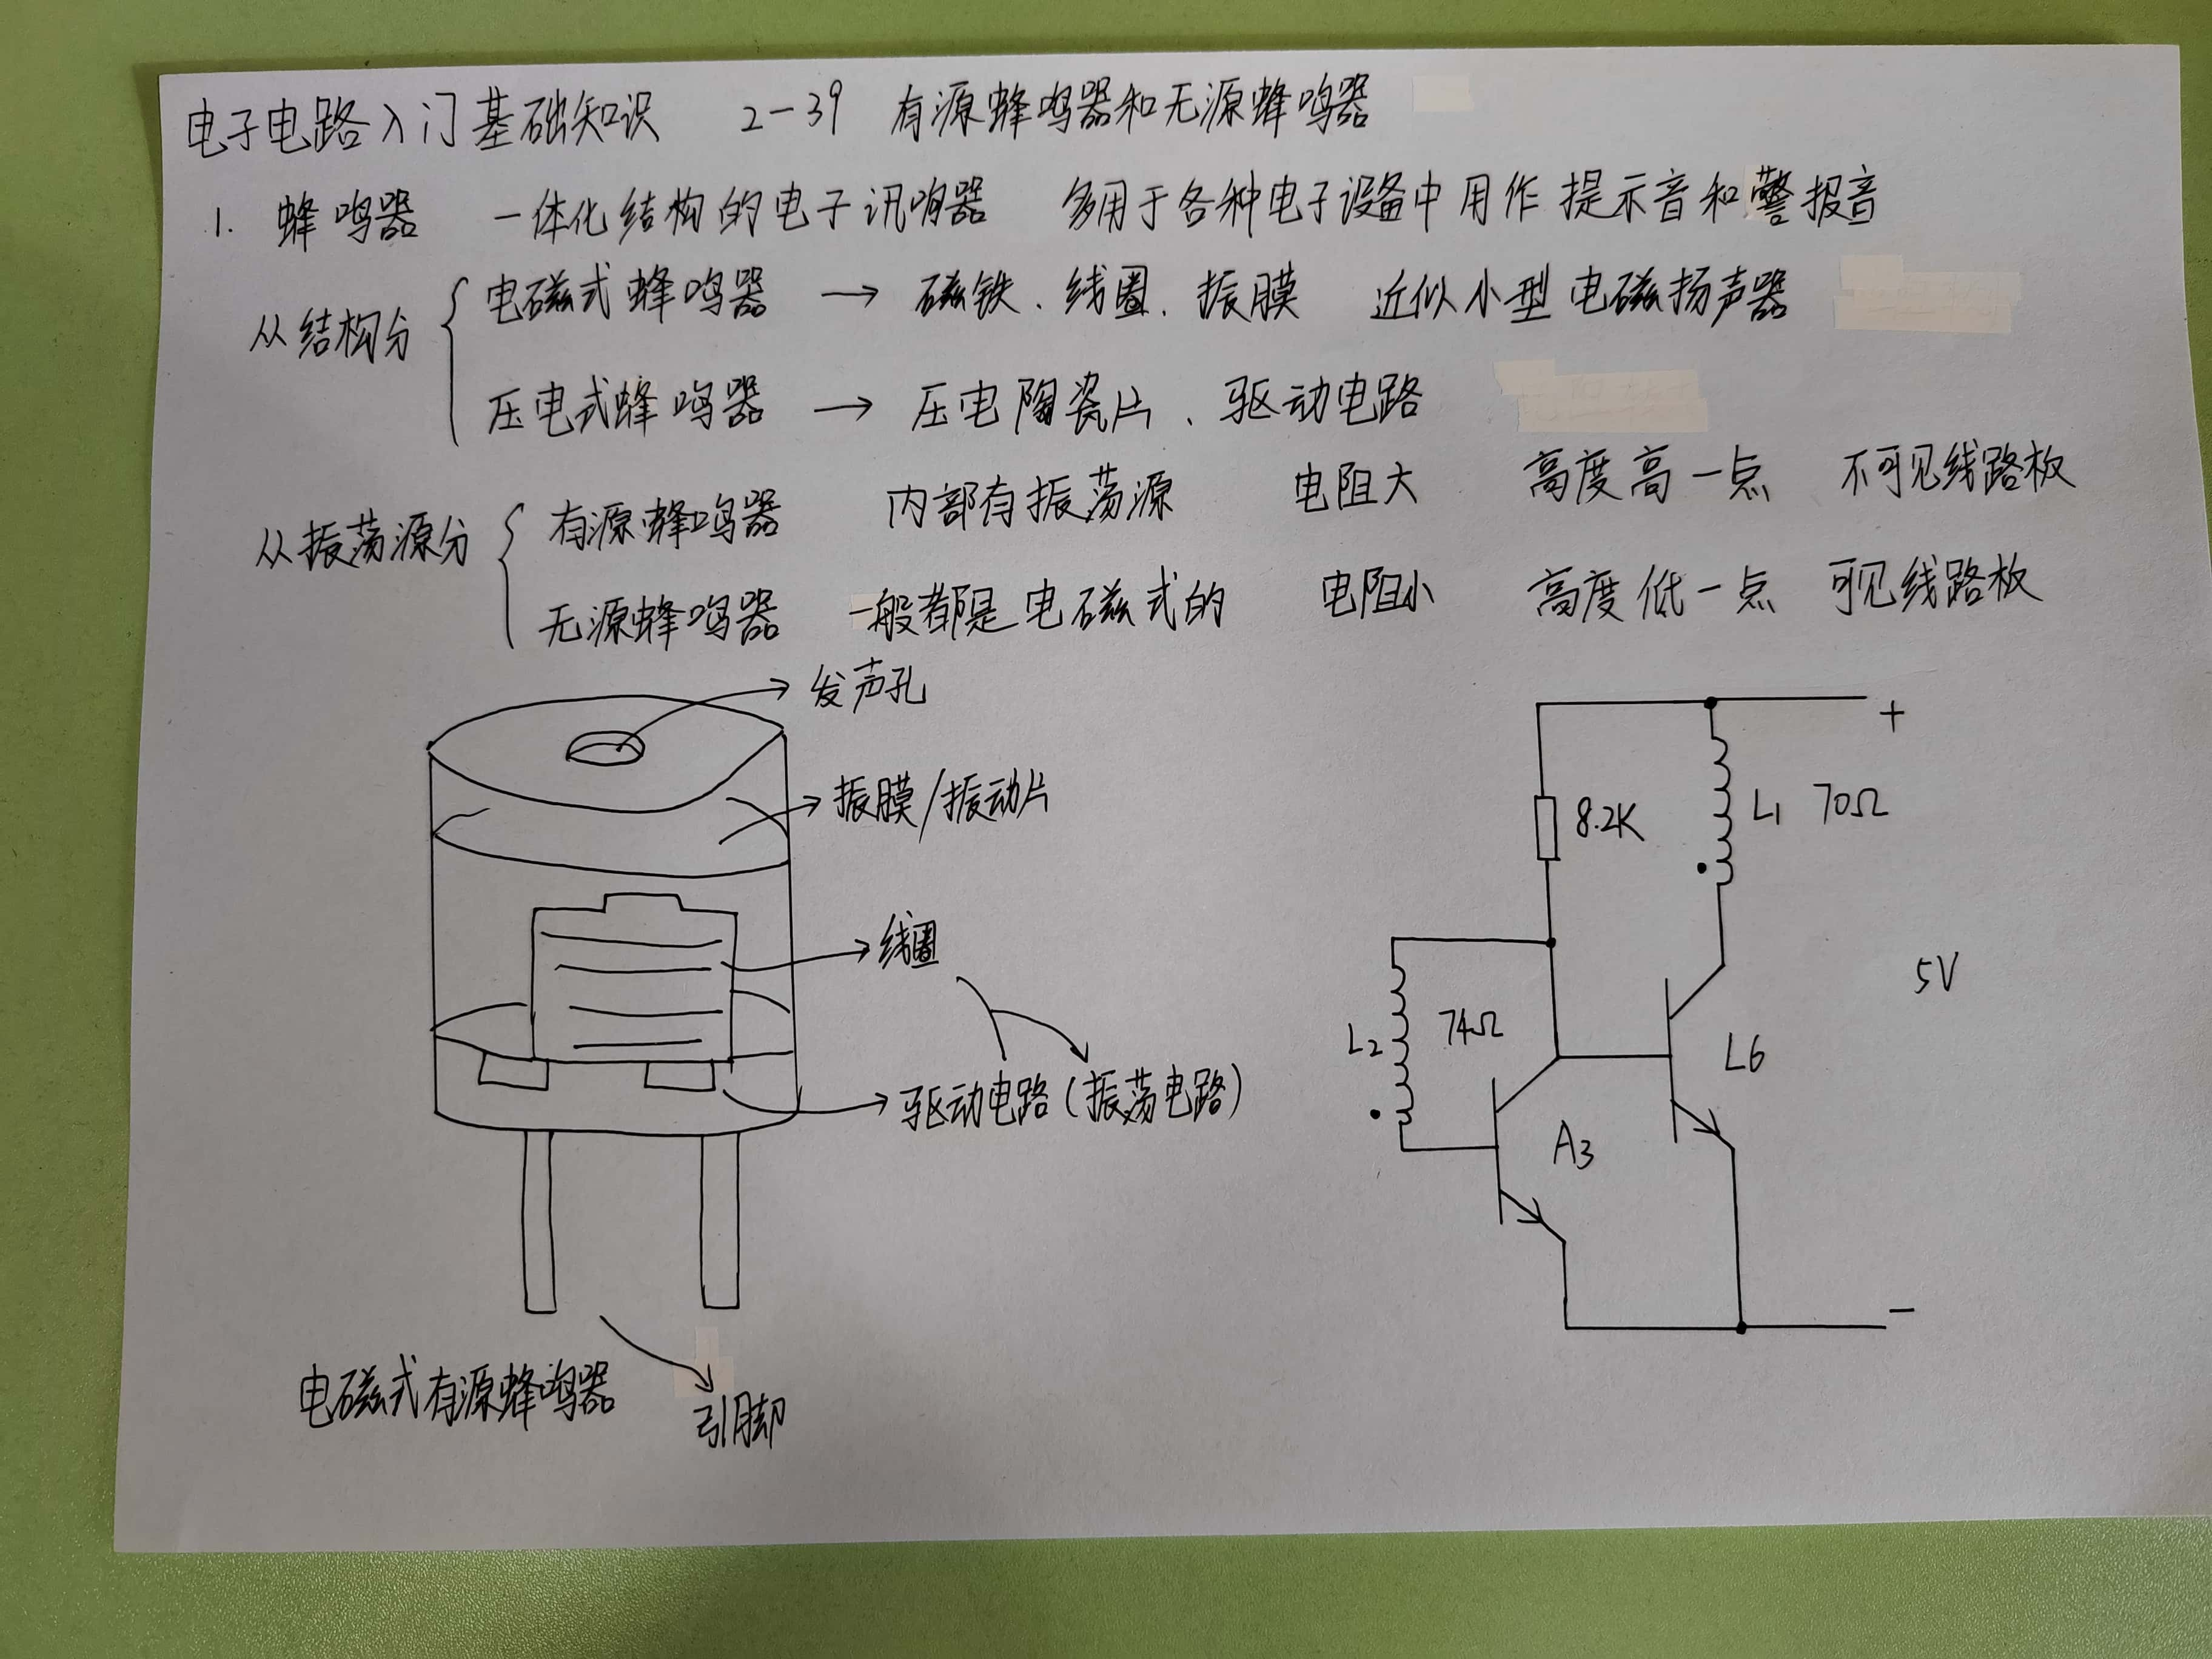 电子电路入门基础知识 2-39 有源蜂鸣器和无源蜂鸣器
1. 蜂鸣器 一体化结构的电子讯响器 多用于各种电子设备中用作提示音和警报音
从结构分
电磁式蜂鸣器 → 磁铁、线圈、振膜 近似小型电磁扬声器
压电式蜂鸣器 → 压电陶瓷片、驱动电路
从振荡源分
有源蜂鸣器 内部有振荡源 电阻大 高度高一点 不可见线路板
无源蜂鸣器 一般都是电磁式的 电阻小 高度低一点 可见线路板
发声孔
振膜/振动片
线圈
驱动电路(振荡电路)
引脚
电磁式有源蜂鸣器
+
8.2K
L1 70Ω
5V
L2 74Ω
L6
A3
-